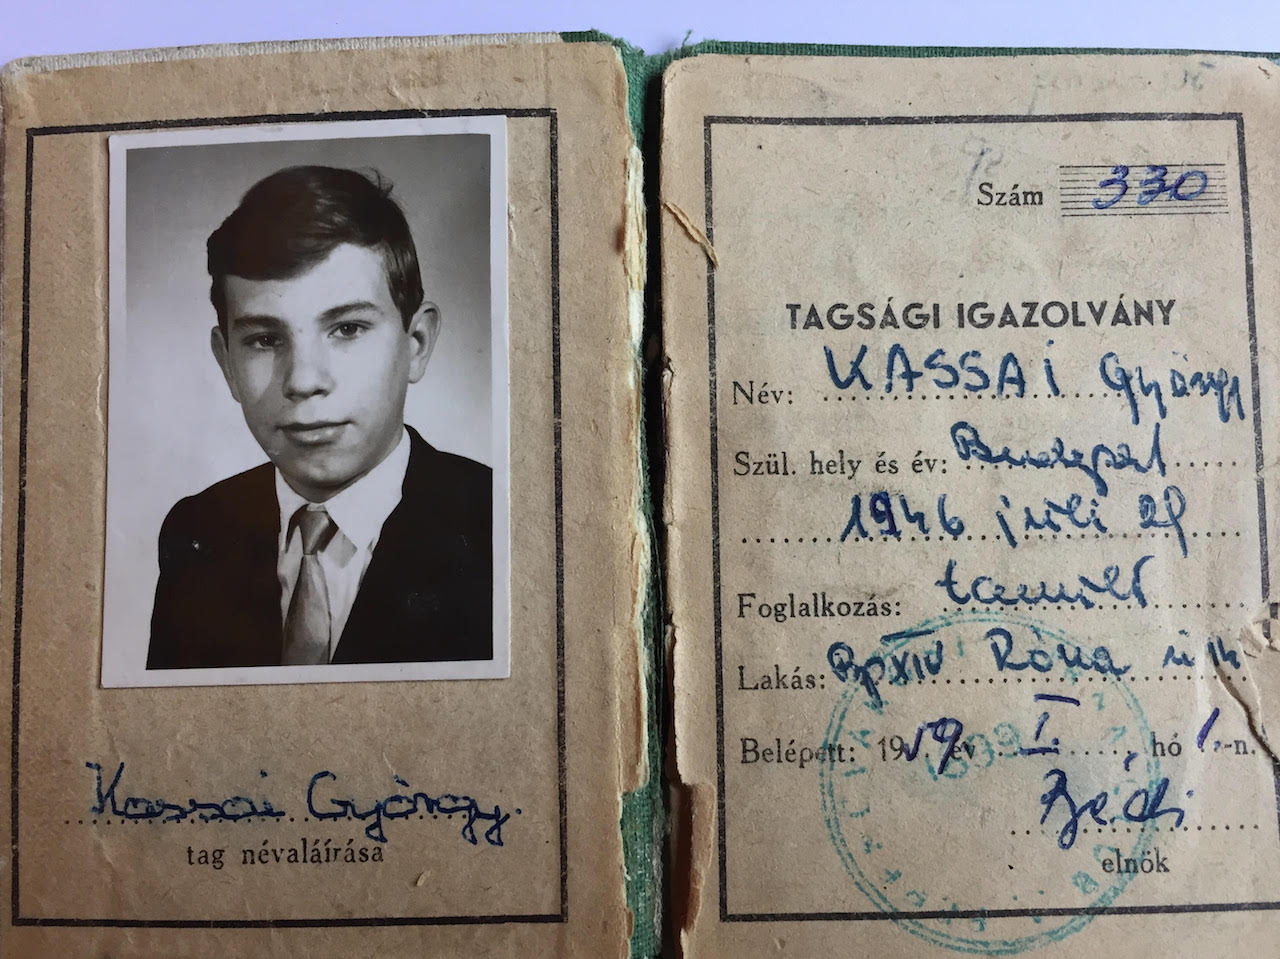 Kassai György.
tag névaláírása
Szám 330
TAGSÁGI IGAZOLVÁNY
Név: KASSAI György
Szül. hely és év: Budapest
1946 júli 28
Foglalkozás: tanuló
Lakás: Bp XIV Róna u 14
Belépett: 1959 év I. hó 1.-n.
elnök